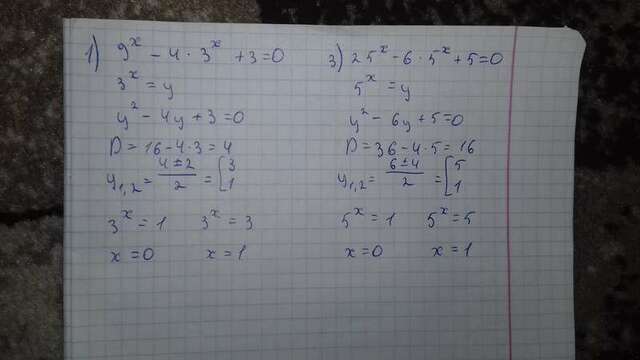 1) 9^x - 4 · 3^x + 3 = 0
3^x = y
y^2 - 4y + 3 = 0
D = 16 - 4·3 = 4
y_{1,2} = \frac{4 ± 2}{2} = [3 1
3^x = 1 3^x = 3
x = 0 x = 1
3) 25^x - 6 · 5^x + 5 = 0
5^x = y
y^2 - 6y + 5 = 0
D = 36 - 4·5 = 16
y_{1,2} = \frac{6 ± 4}{2} = [5 1
5^x = 1 5^x = 5
x = 0 x = 1